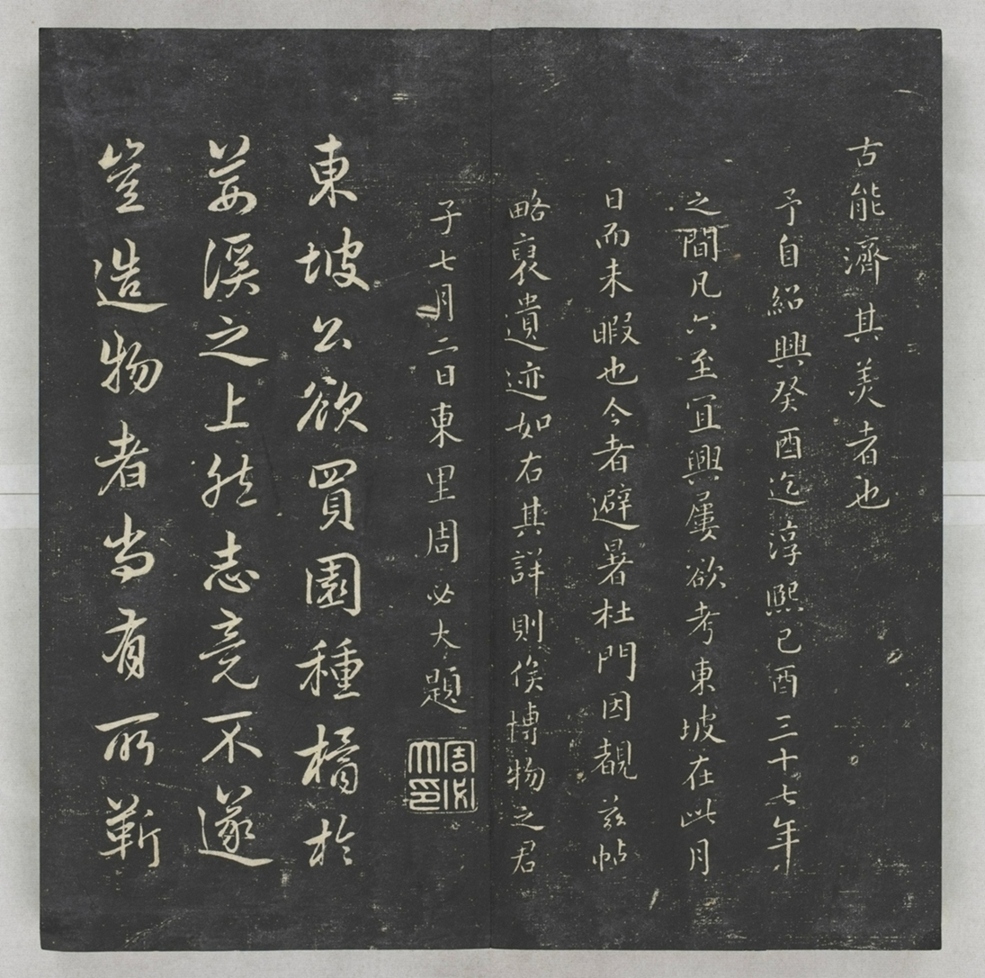 古能濟其美者也
予自紹興癸酉迄淳熙己酉三十七年
之間凡六至宜興屢欲考東坡在此月
日而未暇也今者避暑杜門因覩茲帖
略裒遺迹如右其詳則俟博物之君
子七月二日東里周必大題
周必大印
東坡公欲買園種橘於
荊溪之上然志竟不遂
豈造物者尚有所靳